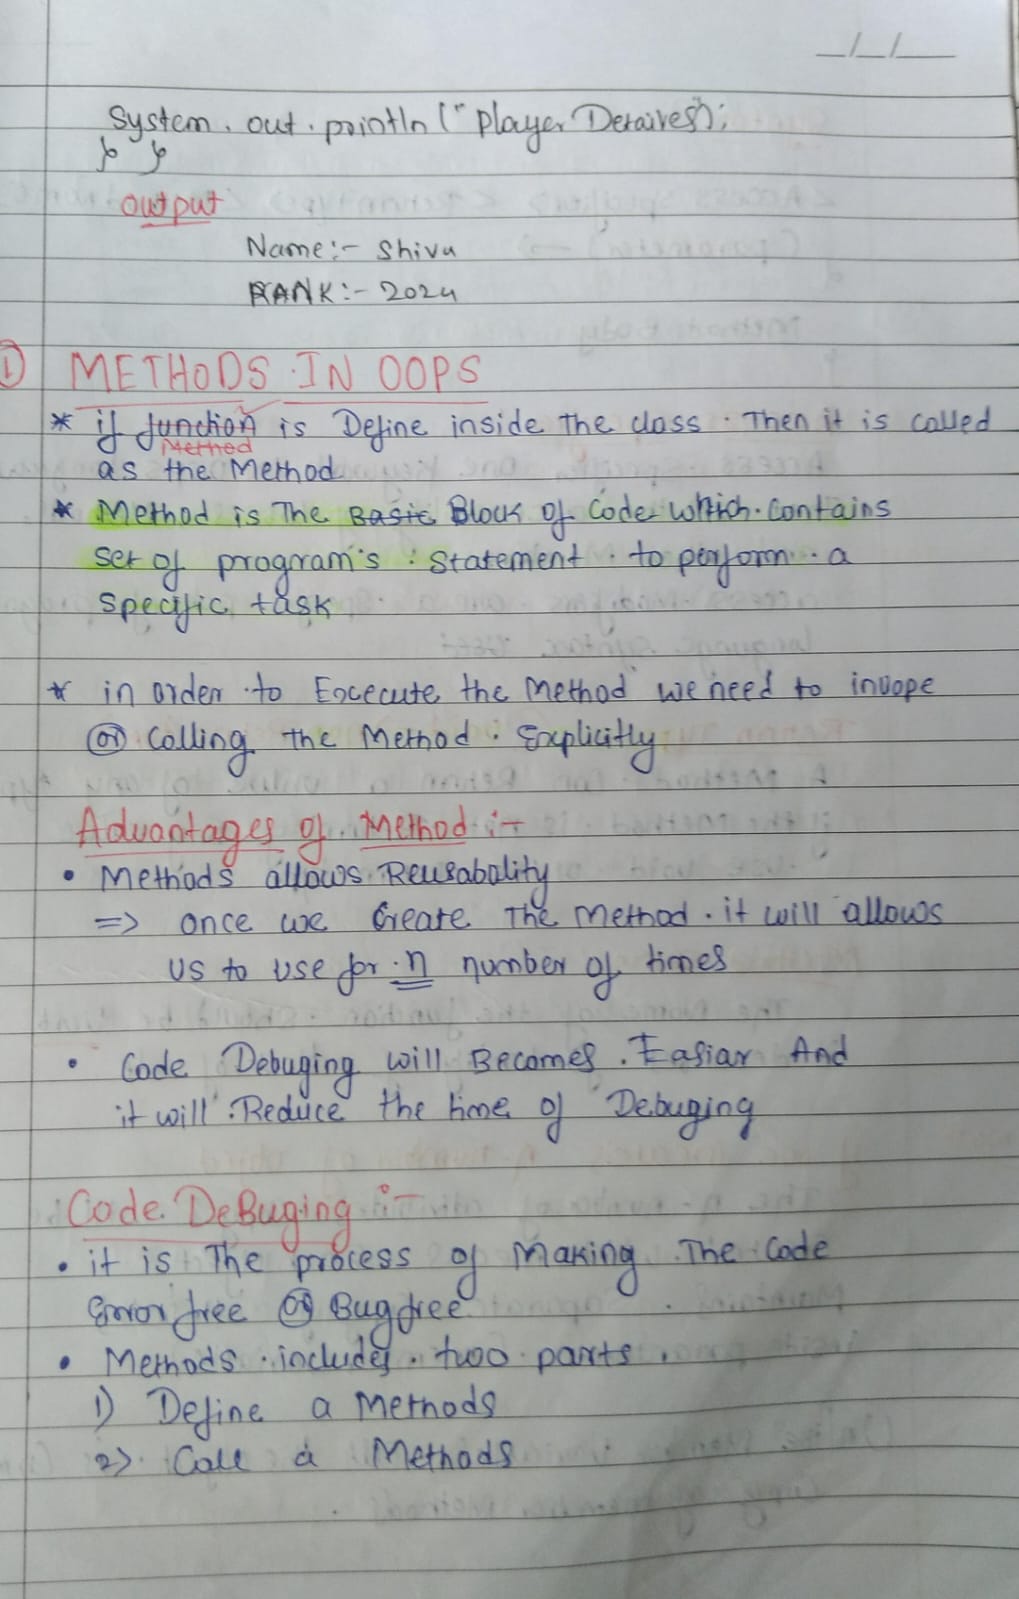 __/__/____
System. out. println ("Player Detaires");
} }
output
Name:- Shiva
RANK:- 2024
1) METHODS IN OOPS
* if function is Define inside The class. Then it is called
Method
as the Method
* Method is The Basic Block of Code which contains
set of program's statement to perform a
specific task
* in order to Excecute the Method we need to invope
or Calling the Method. Explicitly
Advantages of Method :-
• Methods allows Reusabality
=> once we Create The Method. it will allows
us to use for n number of times
• Code Debuging will Becomes. Easiar And
it will Reduce the time of Debuging
Code DeBuging :-
• it is The process of Making The Code
Error free or Bug free
• Methods includes two parts.
1) Define a Methods
2) Call a Methods